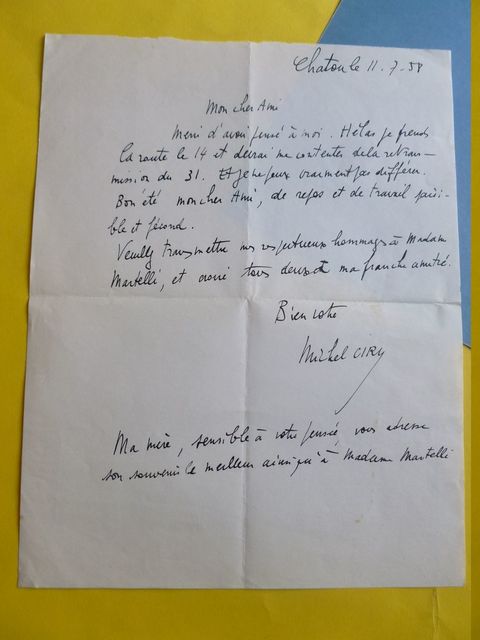 Chatou le 11.7.58
Mon cher Ami
Merci d'avoir pensé à moi. Hélas je prends
la route le 14 et devrai me contenter de la retrans-
mission du 31. Et je ne peux vraiment pas différer.
Bon été mon cher Ami, de repos et de travail paisi-
ble et fécond.
Veuillez transmettre mes respectueux hommages à Madame
Martelli, et croire tous deux à ma franche amitié.
Bien votre
Michel CIRY
Ma mère, sensible à votre pensée, vous adresse
son souvenir le meilleur ainsi qu'à Madame Martelli